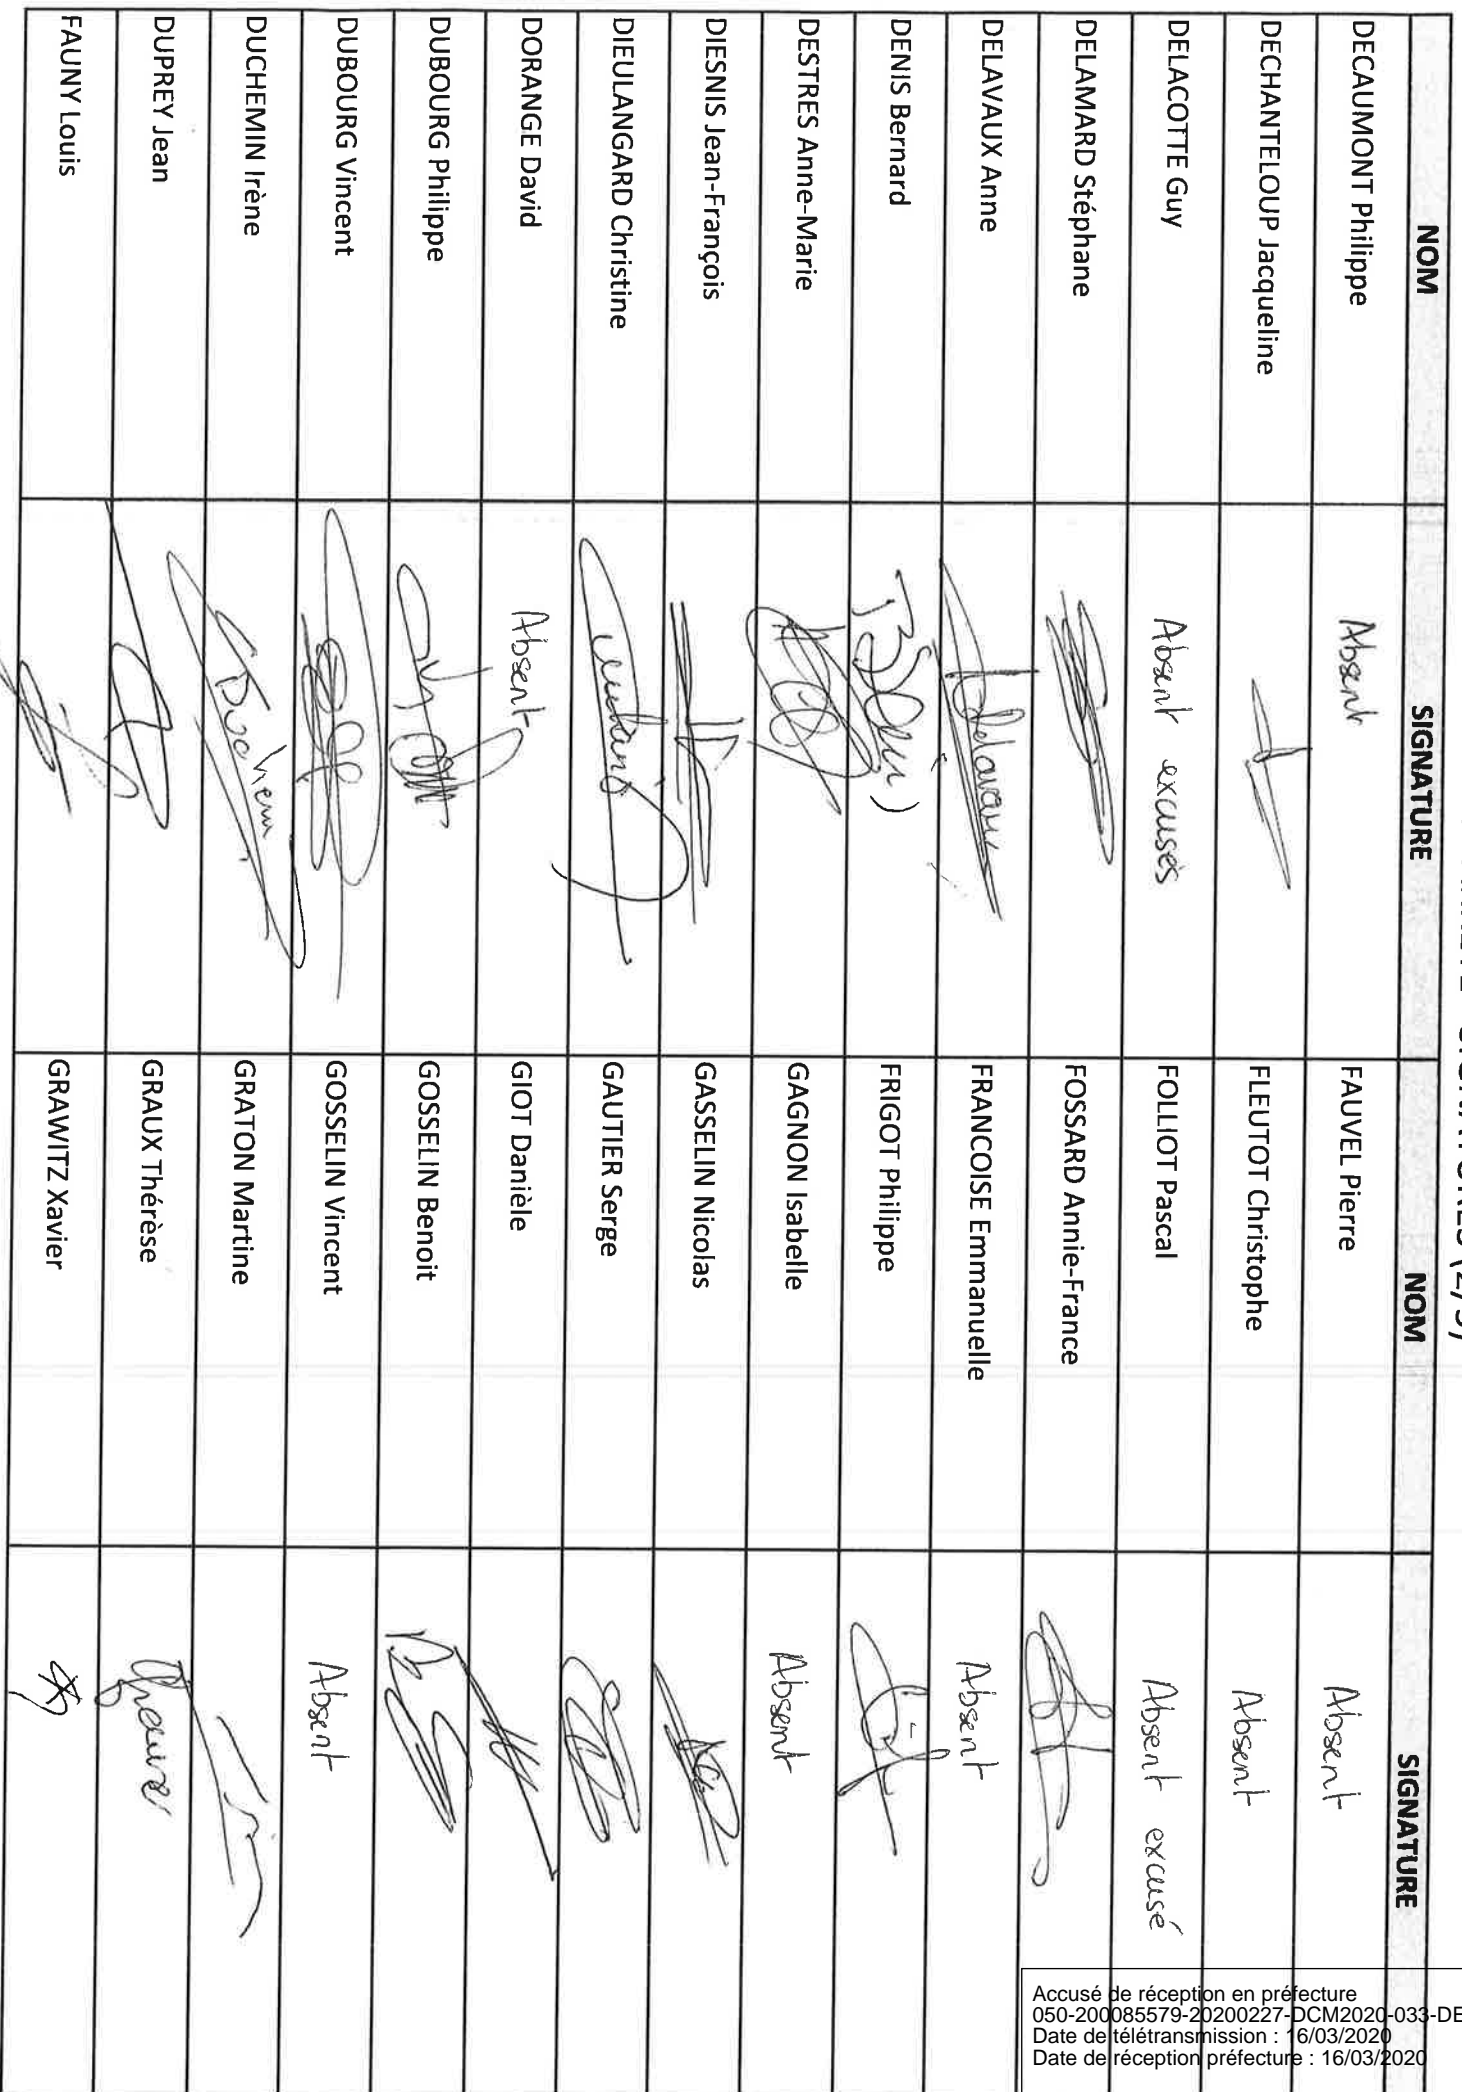 SIGNATURES (2/5)
NOM SIGNATURE NOM SIGNATURE
DECAUMONT Philippe Absent FAUVEL Pierre Absent
DECHANTELOUP Jacqueline FLEUTOT Christophe Absent
DELACOTTE Guy Absent excusés FOLLIOT Pascal Absent excusé
DELAMARD Stéphane FOSSARD Annie-France
DELAVAUX Anne Delavaux FRANCOISE Emmanuelle Absent
DENIS Bernard FRIGOT Philippe
DESTRES Anne-Marie GAGNON Isabelle Absent
DIESNIS Jean-François GASSELIN Nicolas
DIEULANGARD Christine GAUTIER Serge
DORANGE David Absent GIOT Danièle
DUBOURG Philippe GOSSELIN Benoit
DUBOURG Vincent GOSSELIN Vincent Absent
DUCHEMIN Irène GRATON Martine
DUPREY Jean GRAUX Thérèse
FAUNY Louis GRAWITZ Xavier
Accusé de réception en préfecture
050-200085579-20200227-DCM2020-033-DE
Date de télétransmission : 16/03/2020
Date de réception préfecture : 16/03/2020